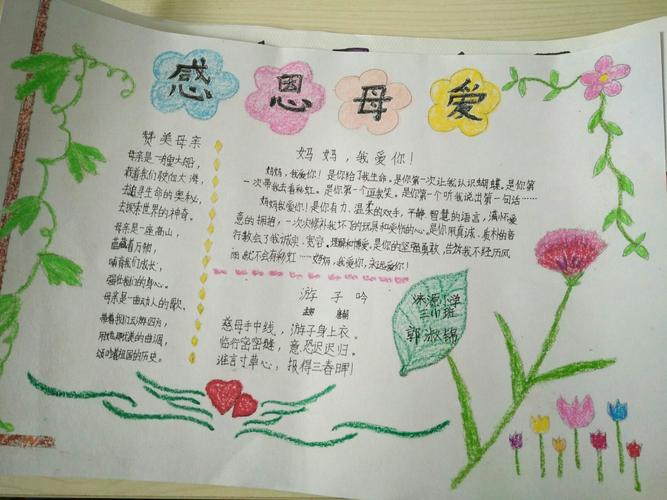 感恩母爱
赞美母亲
母亲是一艘大船,
载着我们驶向大海,
去追寻生命的奥秘,
去探索世界的神奇。
母亲是一座高山,
蕴藏着万物
哺育我们成长,
强壮我们的身心。
母亲是一曲动人的歌、
带着我们去游四方,
用优美的曲调,
颂着祖国的历史。
妈妈,我爱你!
妈妈,我爱你!是你给了我生命。是你第一次让我认识蝴蝶。是你第
一次带我去看彩虹。是你第一个逗我笑。是你第一个听我说出第一句话……
妈妈我爱你!是你有力、温柔的双手,平静、智慧的语言,满怀爱
意的拥抱,一次次修补我坏的玩具和受伤的心。是你用真诚、质朴的言
行教会了我诚实、宽容,理解和博爱。是你的坚强勇敢,告诉我不经历风
雨就不会有彩虹……妈妈,我爱你,永远爱你!
游子吟
慈母手中线,游子身上衣。
临行密密缝,意恐迟迟归。
谁言寸草心,报得三春晖!
涞源小学
三(1)班
郭淑锦